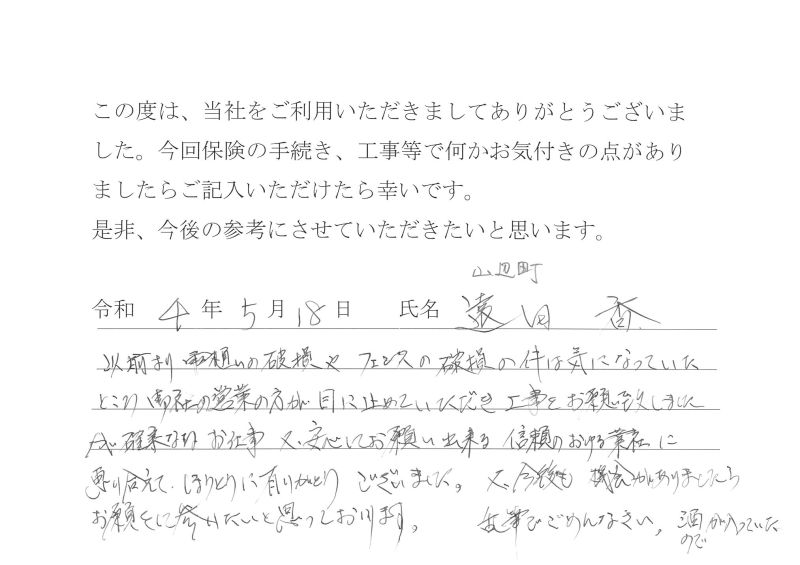 この度は、当社をご利用いただきましてありがとうございま
した。今回保険の手続き、工事等で何かお気付きの点があり
ましたらご記入いただけたら幸いです。
是非、今後の参考にさせていただきたいと思います。
山辺町
令和 4 年 5 月 18 日 氏名 遠田 香
以前より雨樋の破損やフェンスの破損の件は気になっていた
ところ御社の営業の方が目に止めていただき工事をお願い致しました
が確実なお仕事 又、安心してお願い出来る信頼のおける業社に
巡り合えて、ほんとうに有りがとうございました。又、今後も機会がありましたら
お願いしたいと思っております。 乱筆でごめんなさい、酒が入っていた
ので